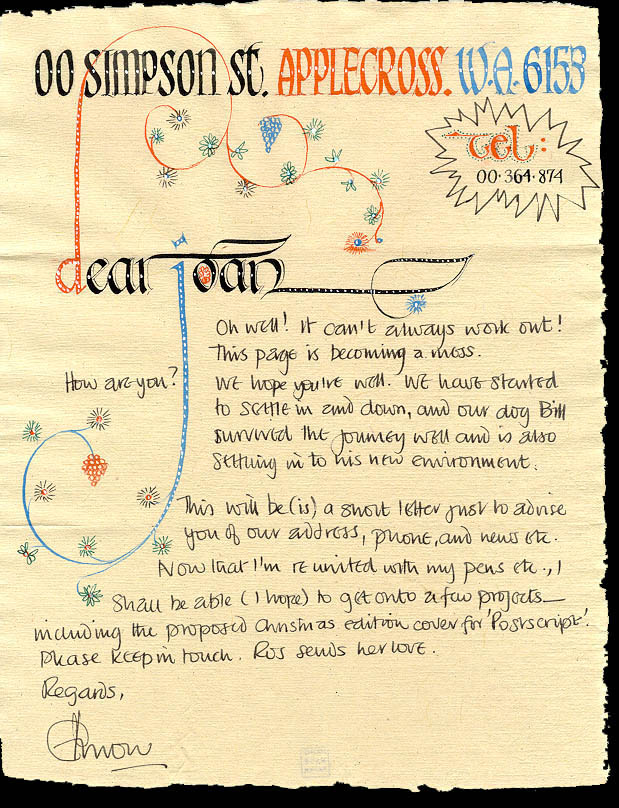 00 SIMPSON St. APPLECROSS. W.A. 6153
tel:
00·364·874
dear joan
Oh well! It can't always work out!
This page is becoming a mess.
How are you?
We hope you're well. We have started
to settle in and down, and our dog Bill
survived the journey well and is also
settling in to his new environment.
This will be (is) a short letter just to advise
you of our address, phone, and news etc.
Now that I'm reunited with my pens etc., I
shall be able (I hope) to get onto a few projects—
including the proposed Christmas edition cover for 'Postscript'.
Please keep in touch. Ros sends her love.
Regards,